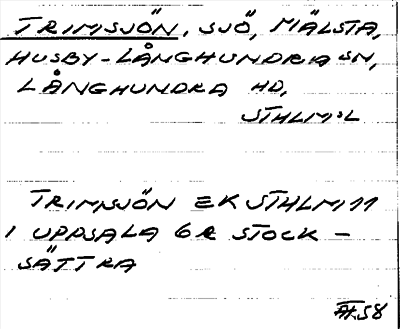 TRIMSJÖN, SJÖ, MÄLSTA,
HUSBY-LÅNGHUNDRA SN,
LÅNGHUNDRA HD,
STHLM:L
TRIMSJÖN EK STHLM 11
I UPPSALA 6 R STOCK-
SÄTTRA
58